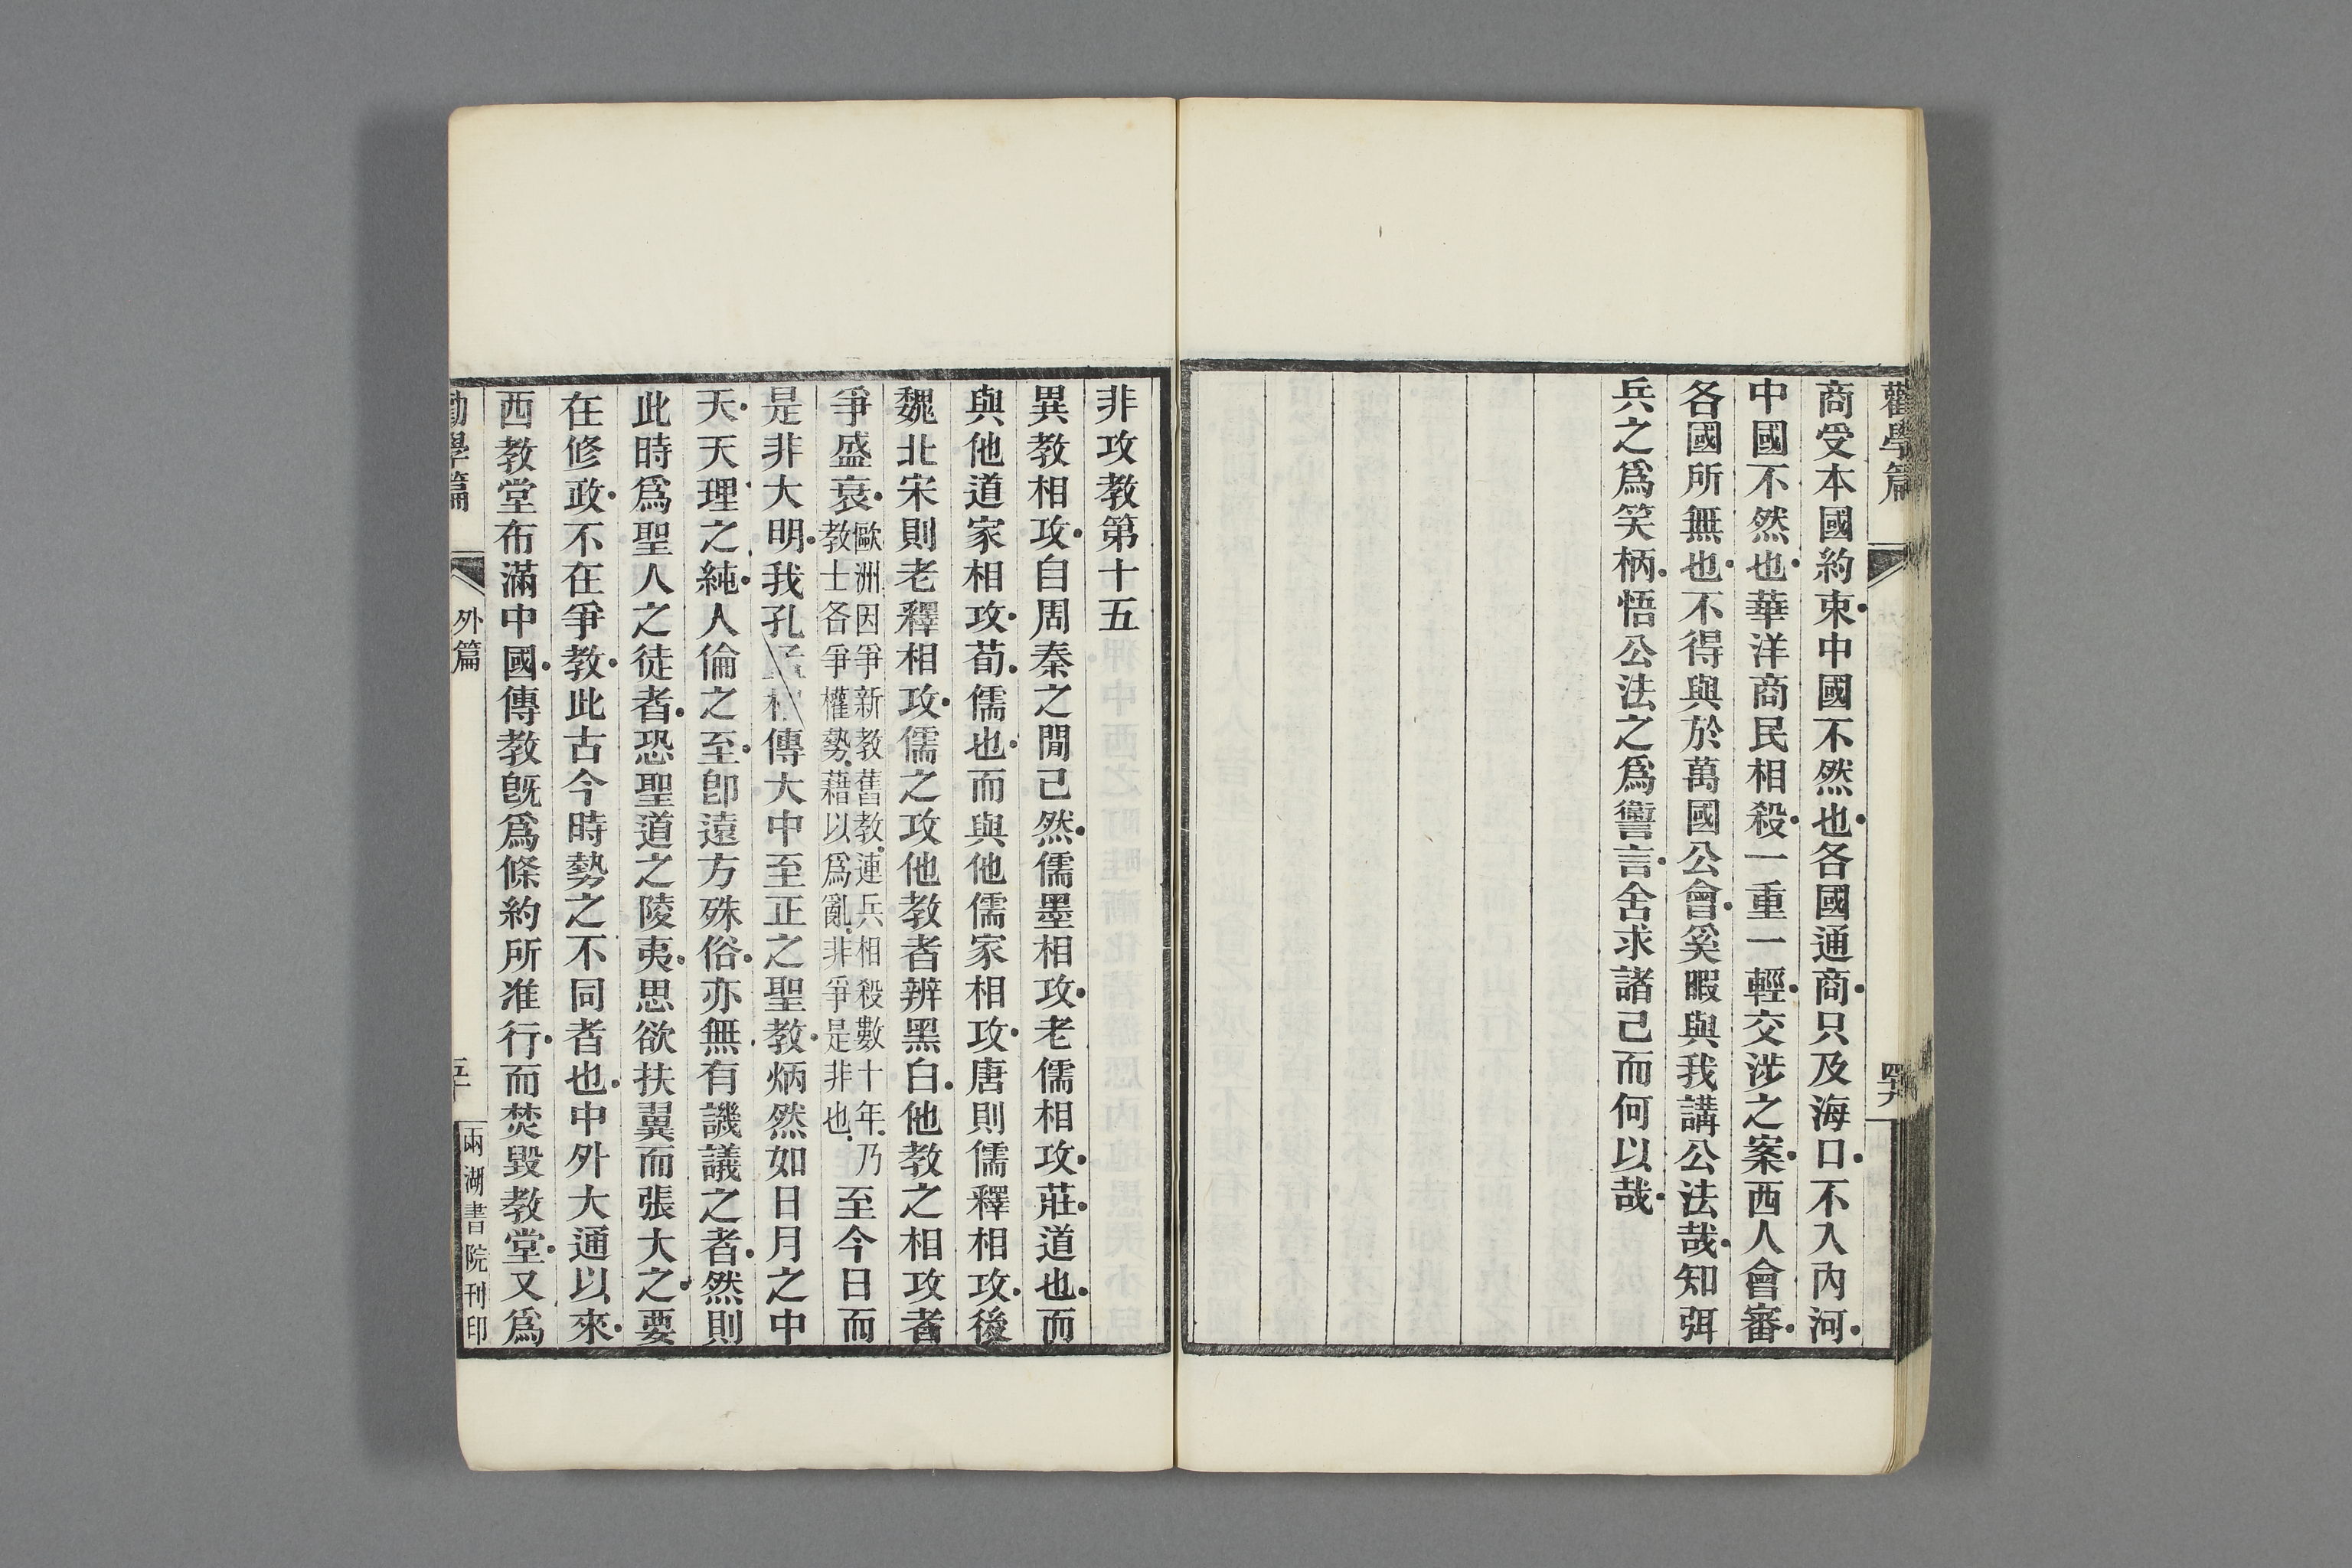 勸學篇
四十九
商受本國約束中國不然也各國通商只及海口不入內河
中國不然也華洋商民相殺一重一輕交涉之案西人會審
各國所無也不得與於萬國公會奚暇與我講公法哉知弭
兵之爲笑柄悟公法之爲讆言舍求諸己而何以哉
非攻教第十五
異教相攻自周秦之閒已然儒墨相攻老儒相攻莊道也而
與他道家相攻荀儒也而與他儒家相攻唐則儒釋相攻後
魏北宋則老釋相攻儒之攻他教者辨黑白他教之相攻者
爭盛衰歐洲因爭新教舊教連兵相殺數十年乃教士各爭權勢藉以爲亂非爭是非也至今日而
是非大明我孔孟相傳大中至正之聖教炳然如日月之中
天天理之純人倫之至卽遠方殊俗亦無有譏議之者然則
此時爲聖人之徒者恐聖道之陵夷思欲扶翼而張大之要
在修政不在爭教此古今時勢之不同者也中外大通以來
西教堂布滿中國傳教旣爲條約所准行而焚毀教堂又爲
勸學篇
外篇
五十
兩湖書院刊印